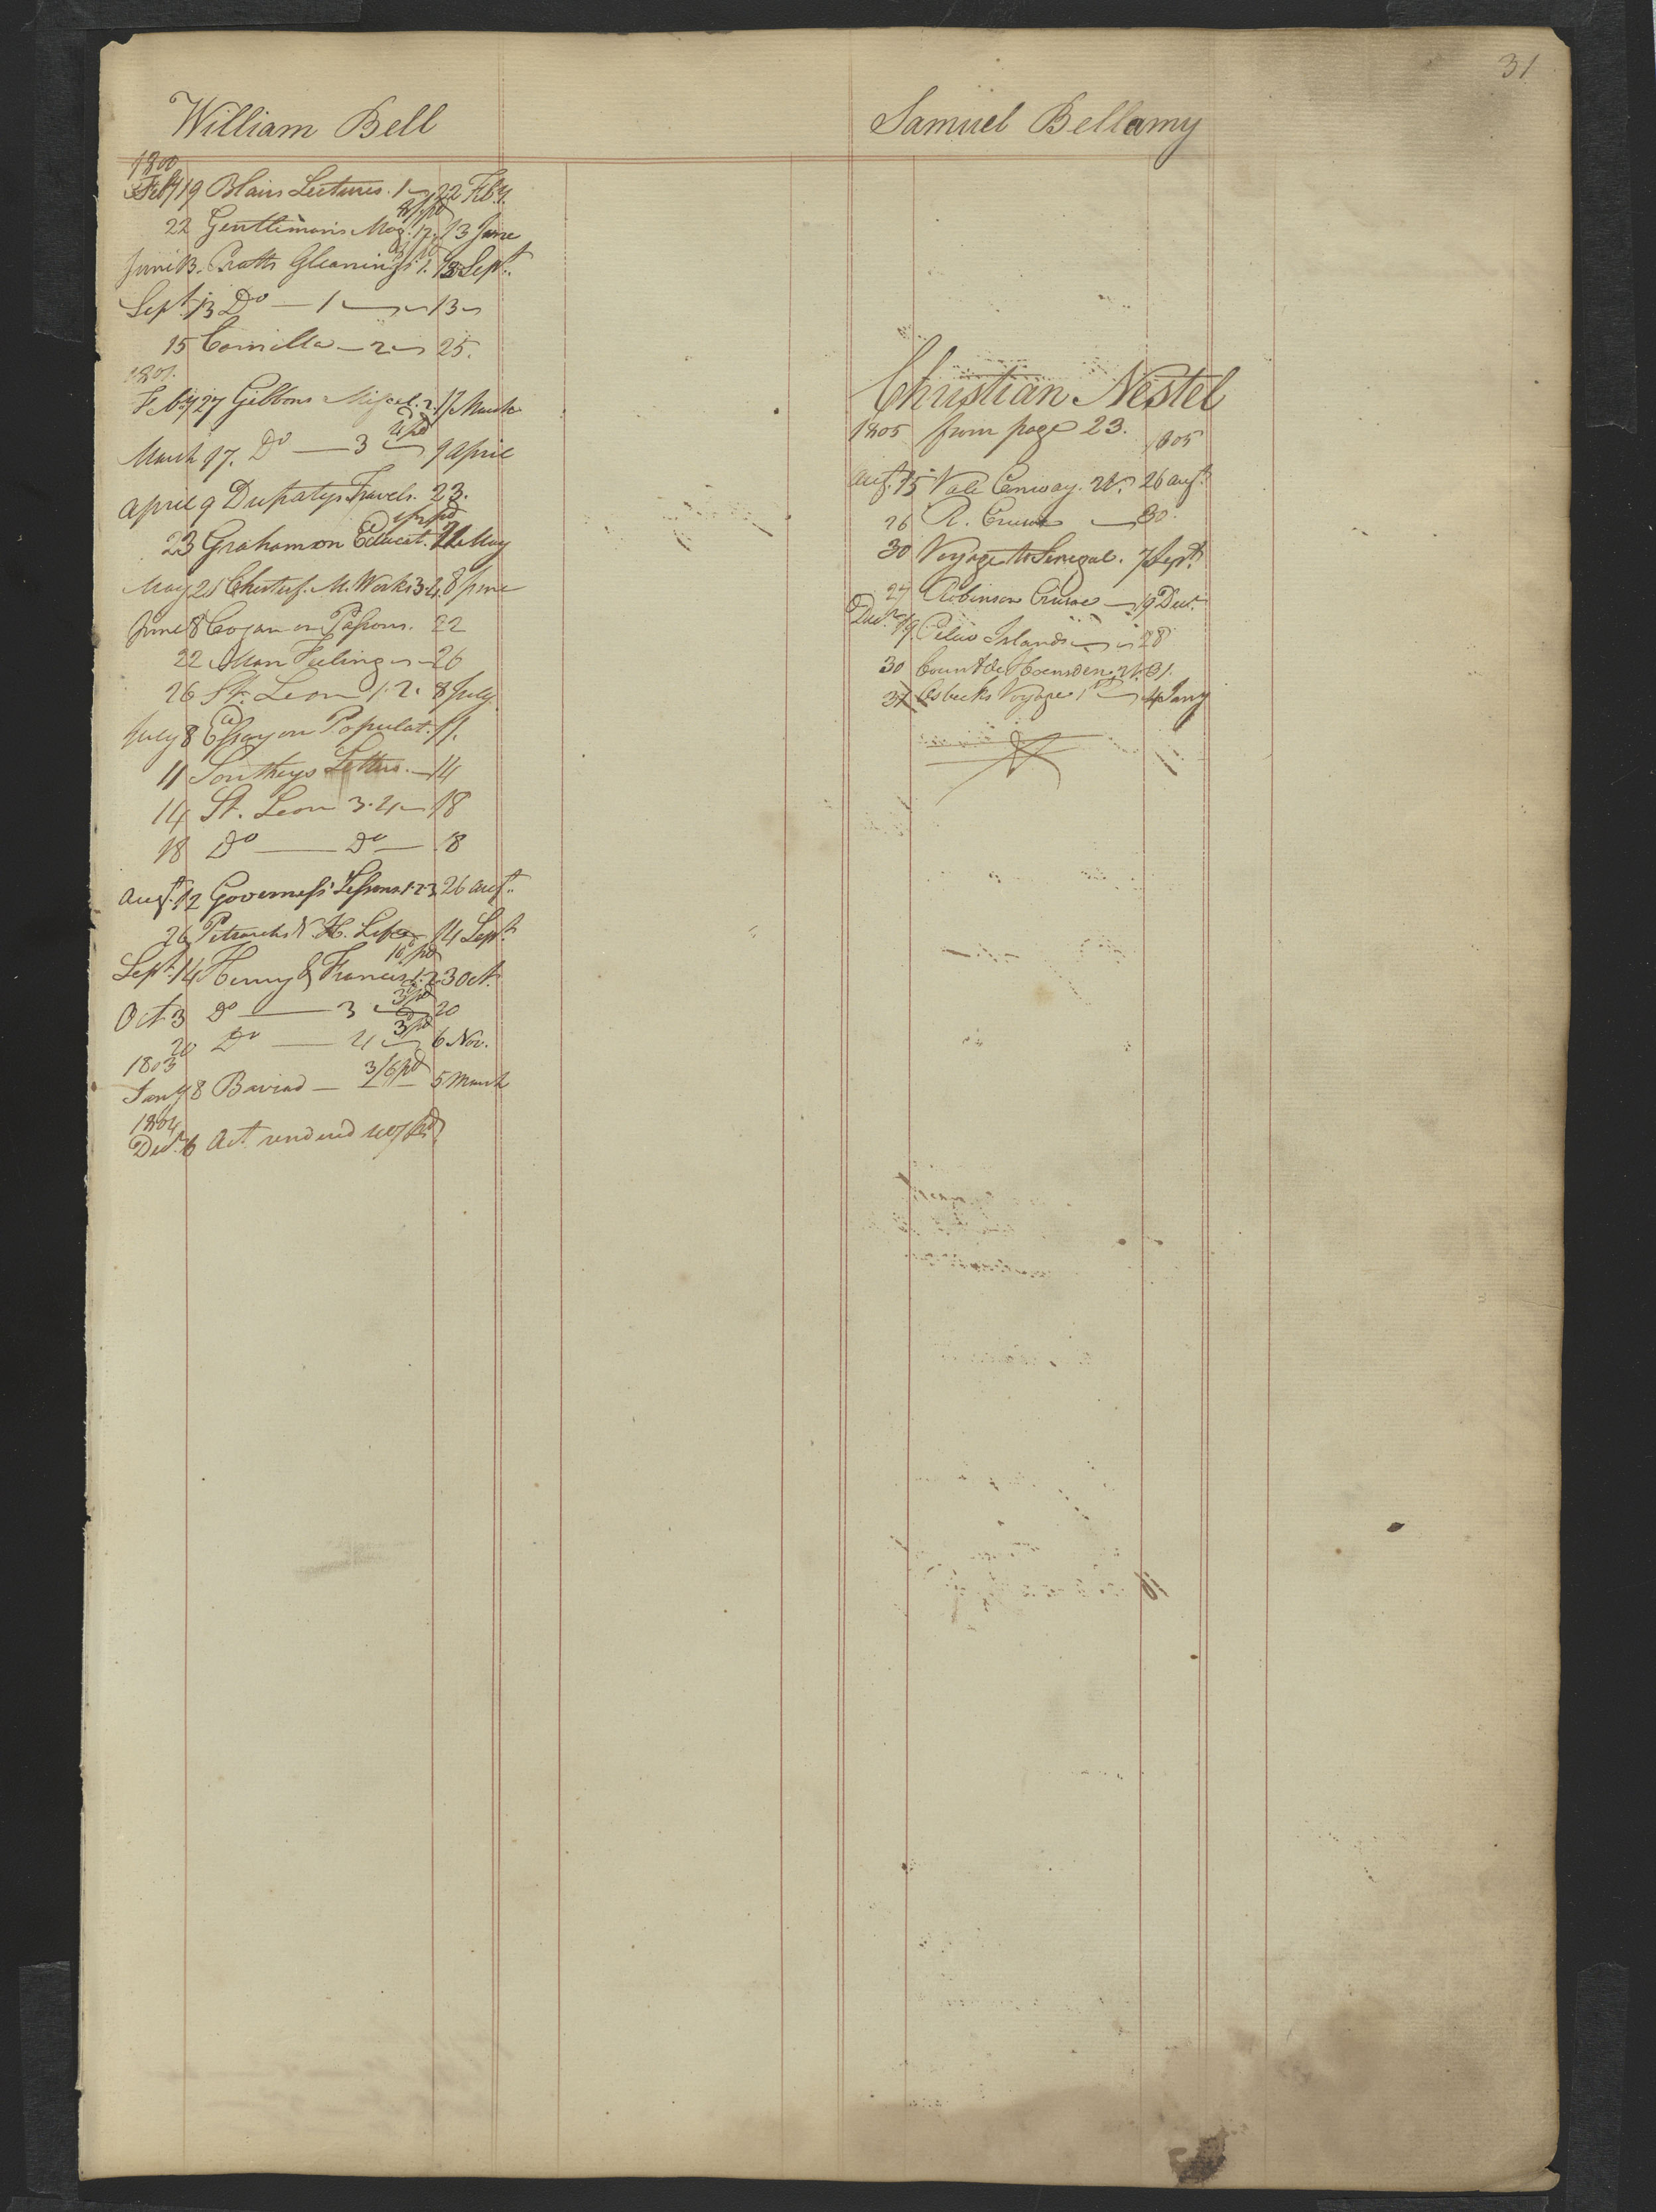 31
William Bell
1800
Feby 19 Blairs Lectures. 1 22 Feby.
22 Gentlemans Mag. 17. 13 June
June 13. Pratts Gleanings. 1. 13 Sept.
Sept. 13 Do — 1 — 13
15 Camilla — 2 — 25.
1801.
Feby 27 Gibbons Miscel. 2. 17 March
March 17. Do — 3 9 April
April 9 Dupatys Travels. 23.
23 Graham on Educat. 21 May
May 21 Chesterf. M. Works 3.4. 8 June
June 8 Cogan on Passions. 22
22 Man Feeling — 26
26 St. Leon 1.2. 8 July
July 8 Essay on Populat. 11.
11 Southeys Letters. — 14
14 St. Leon 3.4 — 18
18 Do — Do — 18
Augt. 12 Governess' Lessons 1.2.3 26 Augt.
26 Petrarchs Life 14 Sept.
10d pd
Sept. 14 Henry & Frances 1.2. 3 Oct.
3d pd
Oct 3 Do — 3 — 20
3d pd
20 Do — 4 — 6 Nov.
1803
Jany 8 Baviad — 3/6 pd 5 March
1804
Decr. 6 Act. rendered pd
Samuel Bellamy
Christian Nestel
1805 from page 23. 1805
Augt. 15 Vale Conway. 2v. 26 Augt.
26 R. Crusoe — 30.
30 Voyage to Senegal. 7 Sept.
27 Robinson Crusoe — 19 Decr.
Decr. 19 Pelew Islands — 28
30 Count de Hoensdern. 2v. 31.
31 Osbecks Voyage 1st — 4 Jany